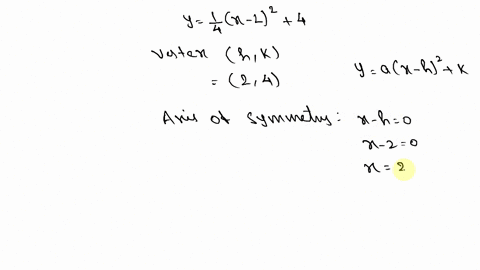 y = 1/4 (x-2)² + 4
Vertex (h, k)
= (2, 4)
y = a(x-h)² + k
Axis of symmetry : x-h = 0
x-2 = 0
x = 2